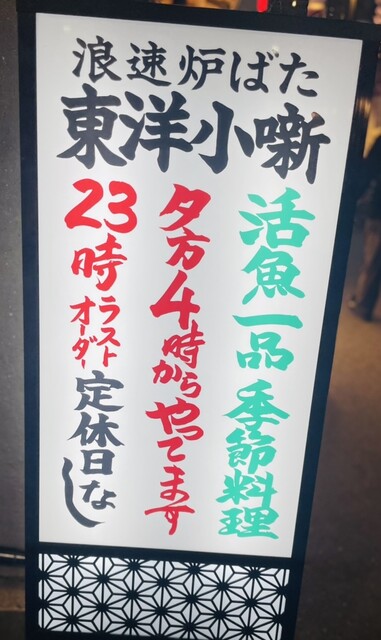 浪速炉ばた
東洋小噺
活魚一品 季節料理
夕方4時からやってます
23時ラストオーダー 定休日なし